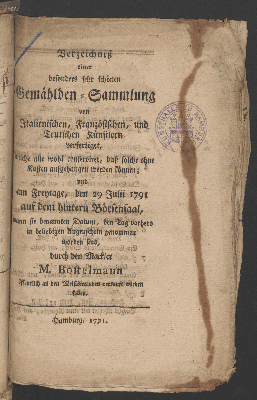 Verzeichniß
einer
besonders sehr schönen
Gemählden-Sammlung
von
Italienischen, Französischen, und
Teutschen Künstlern
verfertiget,
welche alle wohl conserviret, daß solche ohne
Kosten aufgehangen werden können;
und
am Freytage, den 29 Julii 1791
auf dem hintern Börsensaal,
wenn sie benannten Datum, den Tag vorhero
in beliebigen Augenschein genommen
worden sind,
durch den Mackler
M. Bostelmann
öffentlich an den Meistbietenden verkauft werden
sollen.
Hamburg, 1791.